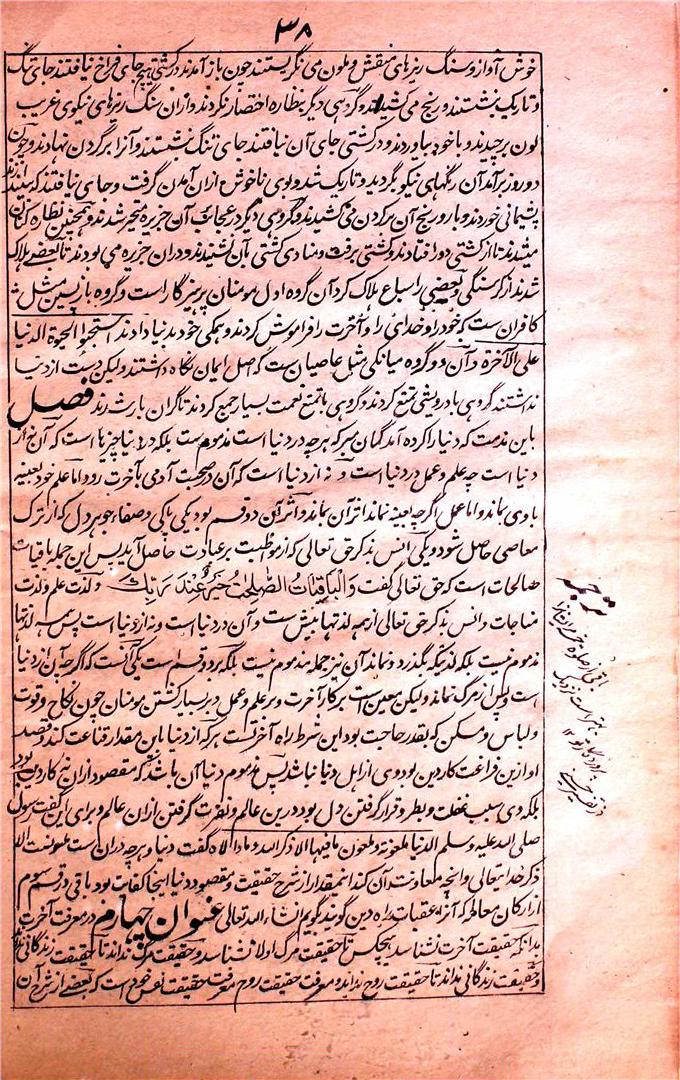 ۳۸
خوش آواز و سنگ ریزهای منقش و ملون می نگریستند چون باز آمدند در کشتی هیچ جای فراخ نیافتند جای تنگ
و تاریک بنشستند و رنج می کشیدند و گروهی دیگر بنظاره اختصار نکردند و ازان سنگ ریزهای نیکوی غریب
لون برچیدند و با خود بیاوردند و در کشتی جای آن نیافتند جای تنگ بنشستند و آنرا بر گردن نهادند و چون
دو روز برآمد آن رنگهای نیکو بگردید و تاریک شد و بوی ناخوش ازان آمدن گرفت و جای نیافتند که بیندازند
پشیمانی خوردند و بار و رنج آن بر گردن می کشیدند و گروهی دیگر در عجائب آن جزیره متحیر شدند و همچنین نظاره کنان
میشدند تا از کشتی دور افتادند و کشتی برفت و منادی کشتی بآن نشنیدند و دران جزیره می بودند تا بعضی هلاک
شدند از گرسنگی و بعضی را سباع هلاک کرد آن گروه اول مومنان پرهیزگار است و گروه بازپسین مثل
کافران ست که خود را و خدای را و آخرت را فراموش کردند و همگی خود بدنیا دادند استحبوا الحیوة الدنیا
علی الآخرة و آن دو گروه میانگی مثل عاصیان ست که اصل ایمان نگاه داشتند ولیکن دست از دنیا
نداشتند گروهی با درویشی تمتع کردند و گروهی با تمتع نعمت بسیار جمع کردند تا گران بار شدند فصل
باین مذمت که دنیا را کرده آمد گمان مبر که هرچه در دنیا است مذموم ست بلکه در دنیا چیزها است که آن نه از
دنیا است چه علم و عمل در دنیا است و نه از دنیا است که آن در صحبت آدمی بآخرت رود اما علم خود بعینه
با وی بماند و اما عمل اگرچه بعینه نماند اثر آن بماند و اثر آن دو قسم بود یکی پاکی و صفاء جوهر دل که از ترک
معاصی حاصل شود و یکی انس بذکر حق تعالی که از مواظبت بر عبادت حاصل آید پس این جمله باقیات
صالحات است که حق تعالی گفت والباقیات الصلحت خیر عند ربک و لذت علم و لذت
مناجات و انس بذکر حق تعالی از همه لذتها بیش ست و آن در دنیا است و نه از دنیا است پس همه لذتها
مذموم نیست بلکه لذتیکه بگذرد و نماند آن نیز جمله مذموم نیست بلکه بر دو قسم ست یکی آنست که اگرچه آن از دنیا
است و پس از مرگ نماند ولیکن معین است بر کار آخرت و بر علم و عمل و بر بسیار گشتن مومنان چون نکاح و قوت
و لباس و مسکن که بقدر حاجت بود این شرط راه آخرتست هرکه از دنیا باین مقدار قناعت کند و قصد
او ازین فراغت کار دین بود وی از اهل دنیا نباشد پس مذموم دنیا آن باشد که مقصود ازان نه کار دین بود
بلکه وی سبب غفلت و بطر و قرار گرفتن دل بود درین عالم و نفرت گرفتن ازان عالم و برای این گفت رسول
صلی الله علیه وسلم الدنیا ملعونة و ملعون ما فیها الا ذکر الله و ما والاه گفت دنیا و هرچه دران ست ملعونست الا
ذکر خدایتعالی و آنچه معاونت آن کند اینمقدار از شرح حقیقت و مقصود دنیا اینجا کفایت بود باقی در قسم سوم
از ارکان معامله که آنرا عقبات راه دین گویند بگویم انشاء الله تعالی عنوان چهارم در معرفت آخرت
بدانکه حقیقت آخرت نشناسد هیچکس تا حقیقت مرگ اولا نشناسد و حقیقت مرگ نداند تا حقیقت زندگانی نداند
و حقیقت زندگانی نداند تا حقیقت روح نداند و معرفت حقیقت روح معرفت حقیقت نفس خود است که بعضی از شرح آن
ترجمه